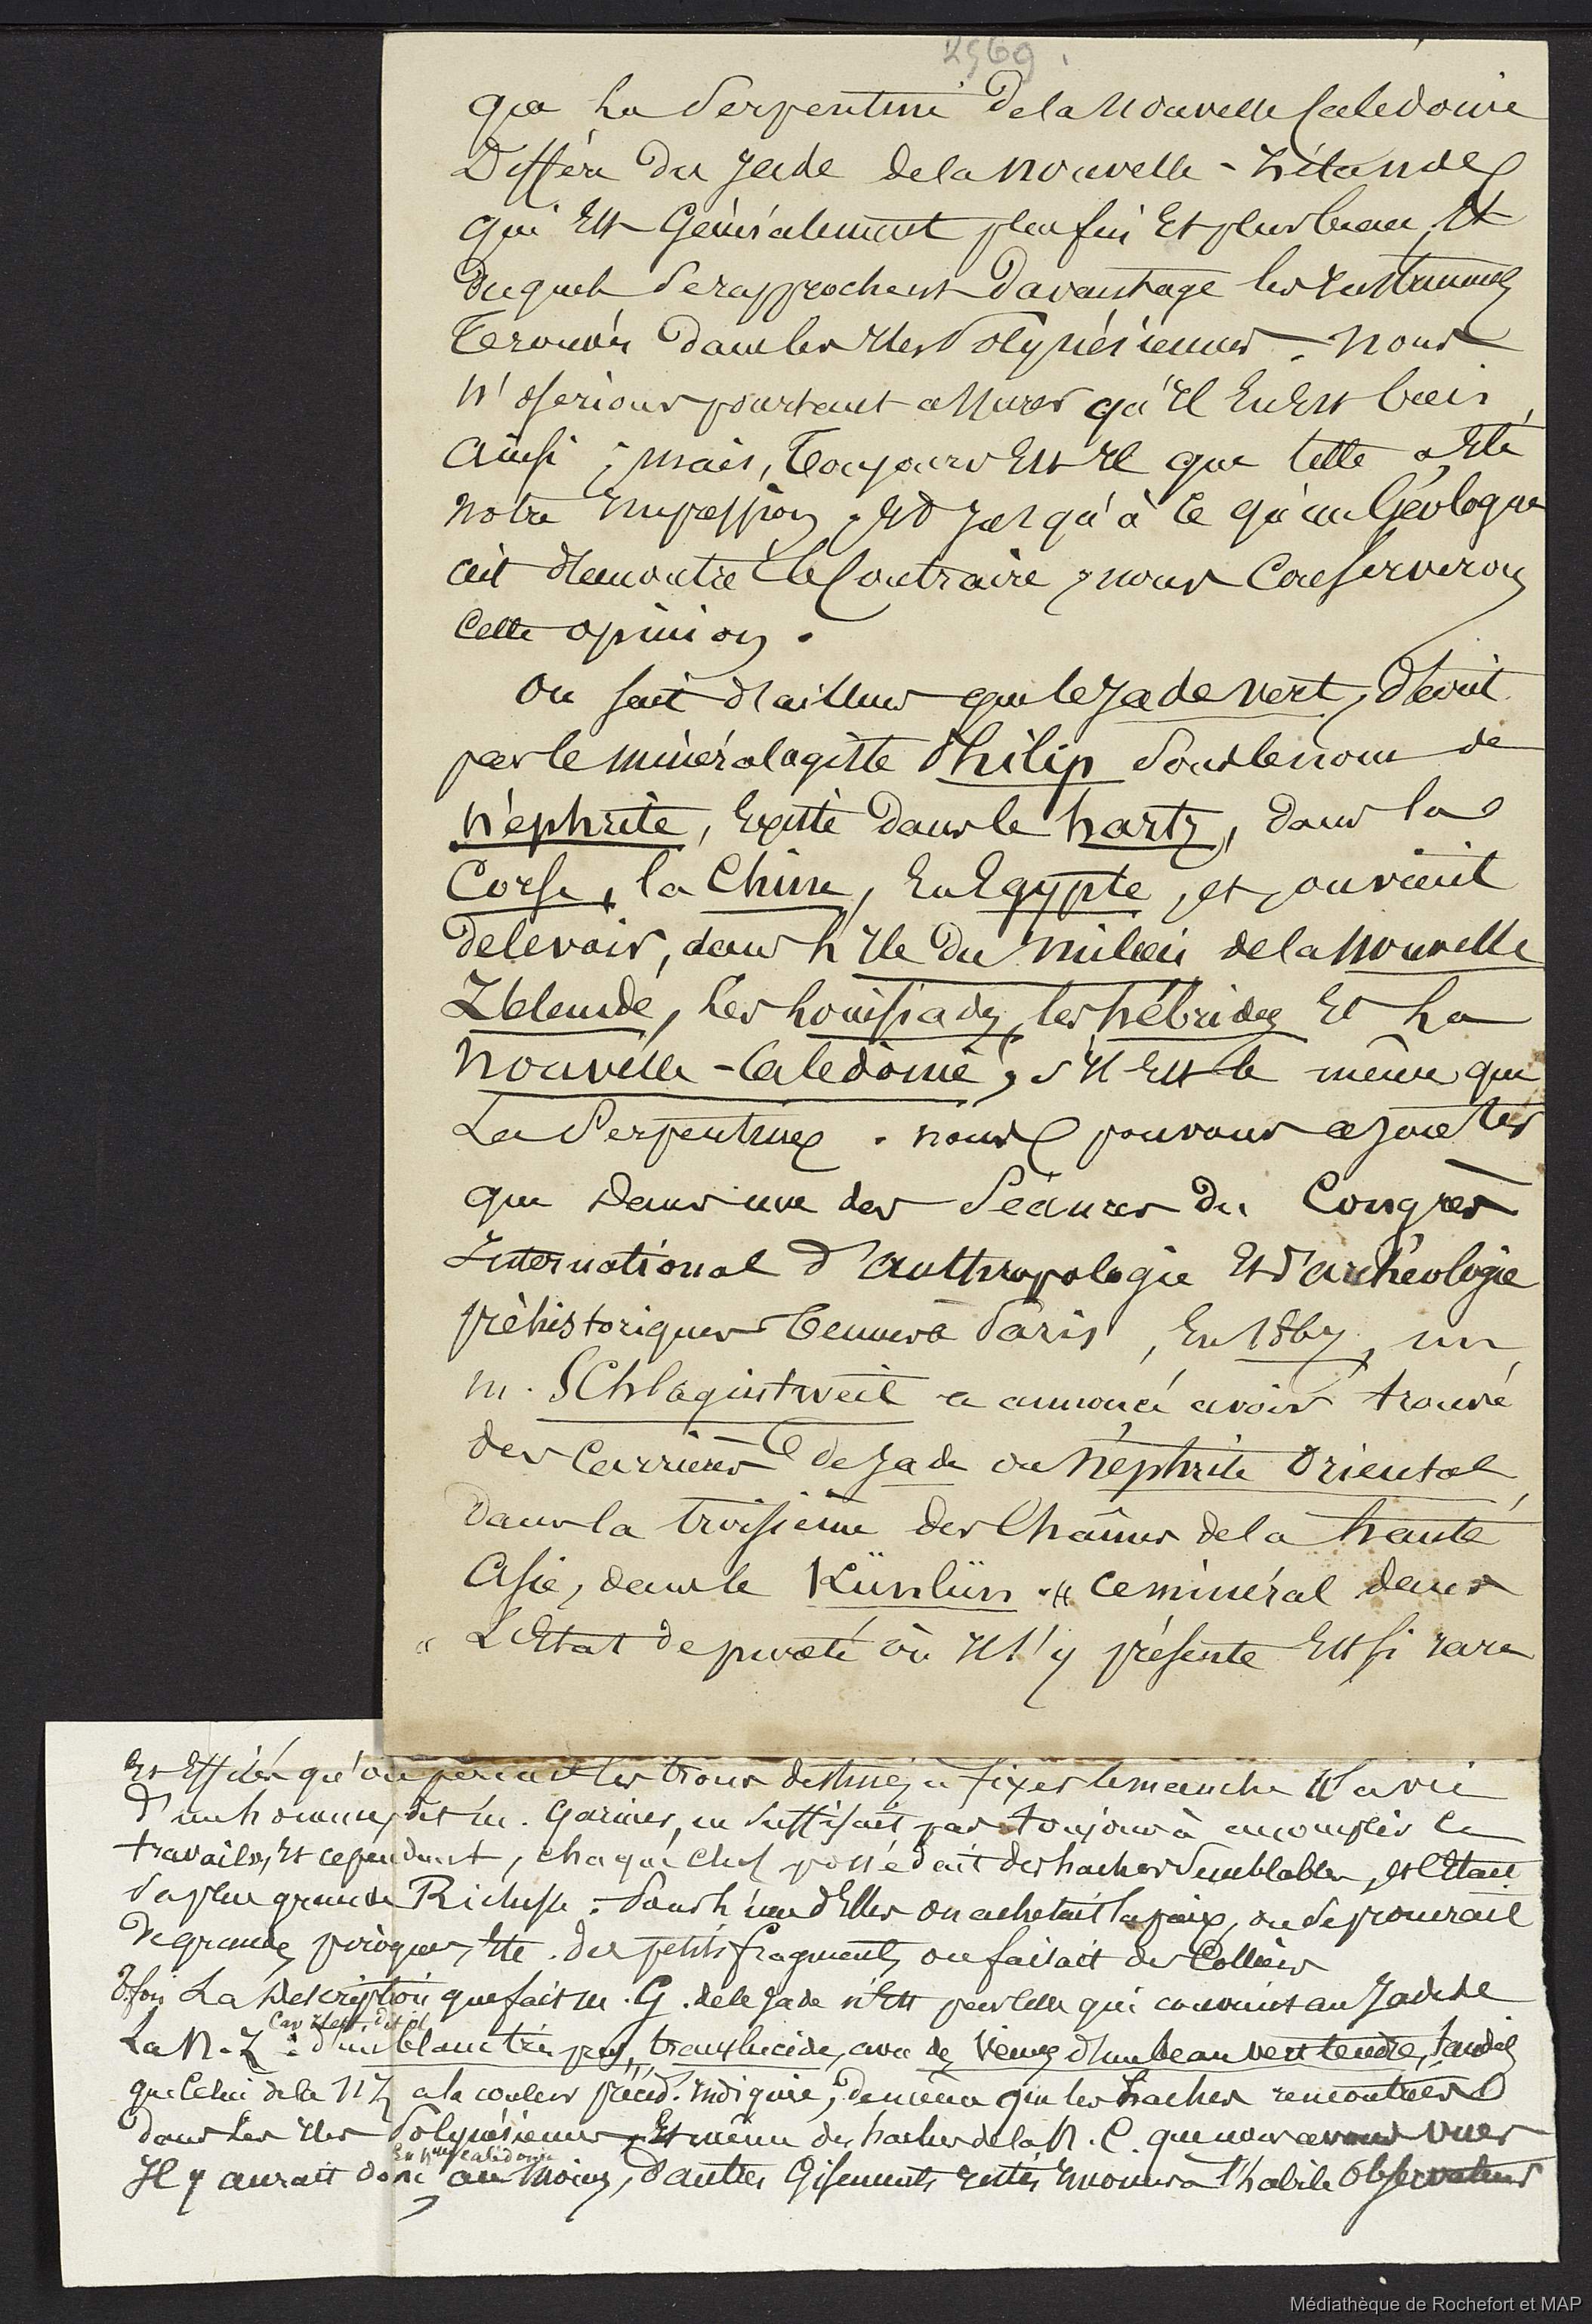 2569.
que la Serpentine de la Nouvelle Calédonie
Diffère du jade de la nouvelle-Zélande,
qui Est Généralement plus fin Et plus beau, Et
duquel Se rapprochent Davantage les instrumens
Trouvés dans les Iles Polynésiennes. Nous
N'oserions pourtant assurer qu'il En Est bien
Ainsi ; mais, Toujours Est-il que telle a Eté
Notre impression, Et jusqu'à ce qu'un Géologue
ait démontré le Contraire, nous Conserverons
Cette opinion.
On sait d'ailleurs que le jade vert, décrit
par le minéralogiste Philip Sous le nom de
Néphrite, Existe dans le hartz, dans la
Corse, la Chine, En Egypte, et, on vient
de le voir, dans l'Ile du milieu de la Nouvelle
Zélande, les Louisiades, les hébrides Et la
Nouvelle-Calédonie, s'Il Est le même que
La Serpentine. Nous pouvons ajouter
que dans une des Séances du Congrès
International d'anthropologie Et d'archéologie
préhistoriques tenues à Paris, En 1867, un
M. SChlagintweit a annoncé avoir trouvé
des Carrières de jade ou Néphrite Oriental,
Dans la troisième des Chaînes de la haute
Asie, dans le Künlün. « Ce minéral dans
« L'Etat de pureté où Il s'y présente Est si rare
Et Effilés qu'on perçait les trous destinés à fixer le manche. La vie
D'un homme, dit M. Garnier, ne Suffisait pas toujours à accomplir ce
travail, Et cependant, chaque chef possédait des haches Semblables, Et c'Etait
Sa plus grande Richesse : Pour l'une d'Elles on achetait la paix, on Se procurait
De grandes pirogues, Etc. des petits fragments on faisait des Colliers
T.fois La Description que fait M. G. de le Jade n'Est pas celle qui convient au Jade de
La N. Z : Car il est, dit-il
d'un blanc très pur, translucide, avec de Veines d'un beau vert tendre, tandis
que Celui de la NZ a la couleur précéd. indiquée, de même que les haches rencontrées
dans les Iles Polynésiennes, Et même des haches de la N. C. que nous avons Vues
En Nlle Calédonie
Il y aurait donc au moins, d'autres Gisements restés inconnus à l'habile Observateur
Médiathèque de Rochefort et MAP